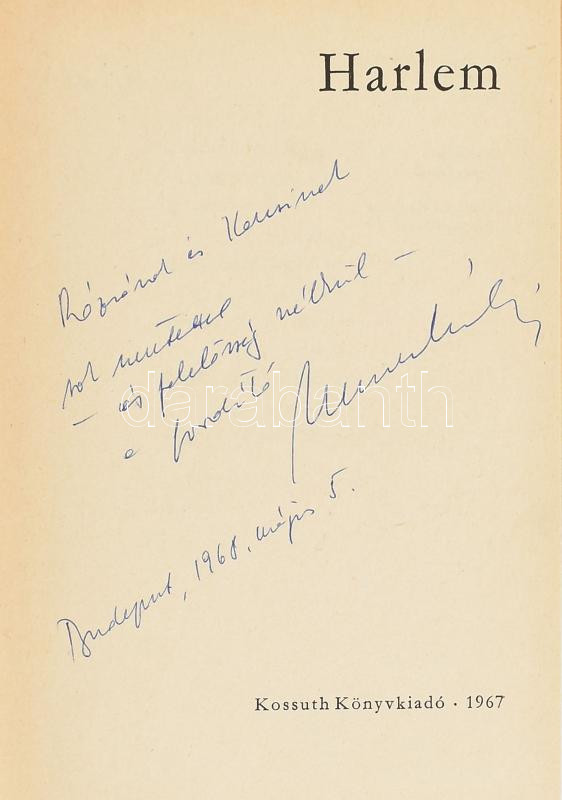 Harlem
Rózsának és
sok szeretettel
— és felelősség nélkül —
a fordító
darabanth
Budapest, 1968. május 5.
Kossuth Könyvkiadó · 1967